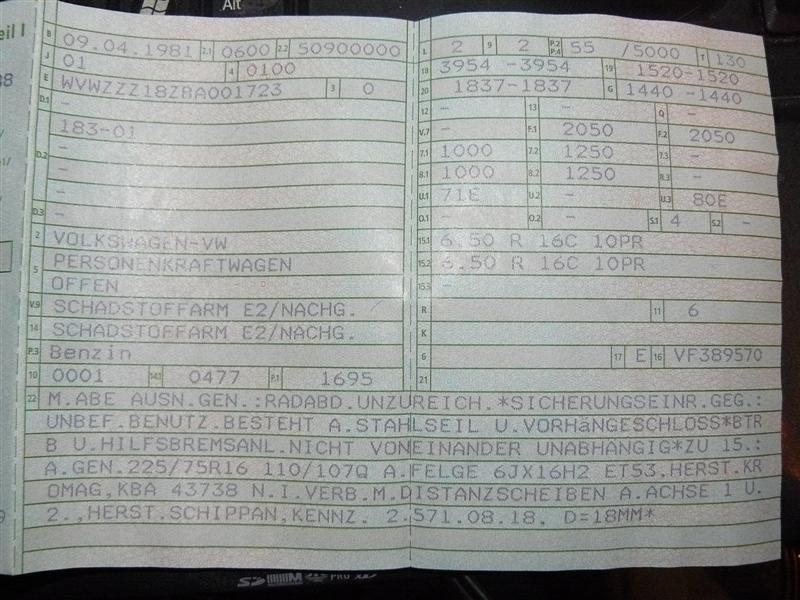 Alt
eil I
B 09.04.1981 2.1 0600 2.2 50900000
J 01 4 0100
E WVWZZZ18ZBA001723 3 0
D.1 -
183-01
D.2 -
-
-
D.3 -
2 VOLKSWAGEN-VW
5 PERSONENKRAFTWAGEN
OFFEN
V.9 SCHADSTOFFARM E2/NACHG.
14 SCHADSTOFFARM E2/NACHG.
P.3 Benzin
10 0001 14.1 0477 P.1 1695
L 2 9 2 P.2 P.4 55 /5000 T 130
18 3954 -3954 19 1520-1520
20 1837-1837 G 1440 -1440
12 - 13 - Q -
V.7 - F.1 2050 F.2 2050
7.1 1000 7.2 1250 7.3 -
8.1 1000 8.2 1250 8.3 -
U.1 71E U.2 - U.3 80E
O.1 - O.2 - S.1 4 S.2 -
15.1 6.50 R 16C 10PR
15.2 6.50 R 16C 10PR
15.3 -
R 11 6
K
6 17 E 16 VF389570
21
22 M.ABE AUSN.GEN.:RADABD.UNZUREICH.*SICHERUNGSEINR.GEG.:
UNBEF.BENUTZ.BESTEHT A.STAHLSEIL U.VORHäNGESCHLOSS*BTR
B U.HILFSBREMSANL.NICHT VONEINANDER UNABHÄNGIG*ZU 15.:
A.GEN.225/75R16 110/107Q A.FELGE 6JX16H2 ET53,HERST.KR
OMAG,KBA 43738 N.I.VERB.M.DISTANZSCHEIBEN A.ACHSE 1 U.
2.,HERST.SCHIPPAN,KENNZ. 2.571.08.18. D=18MM*